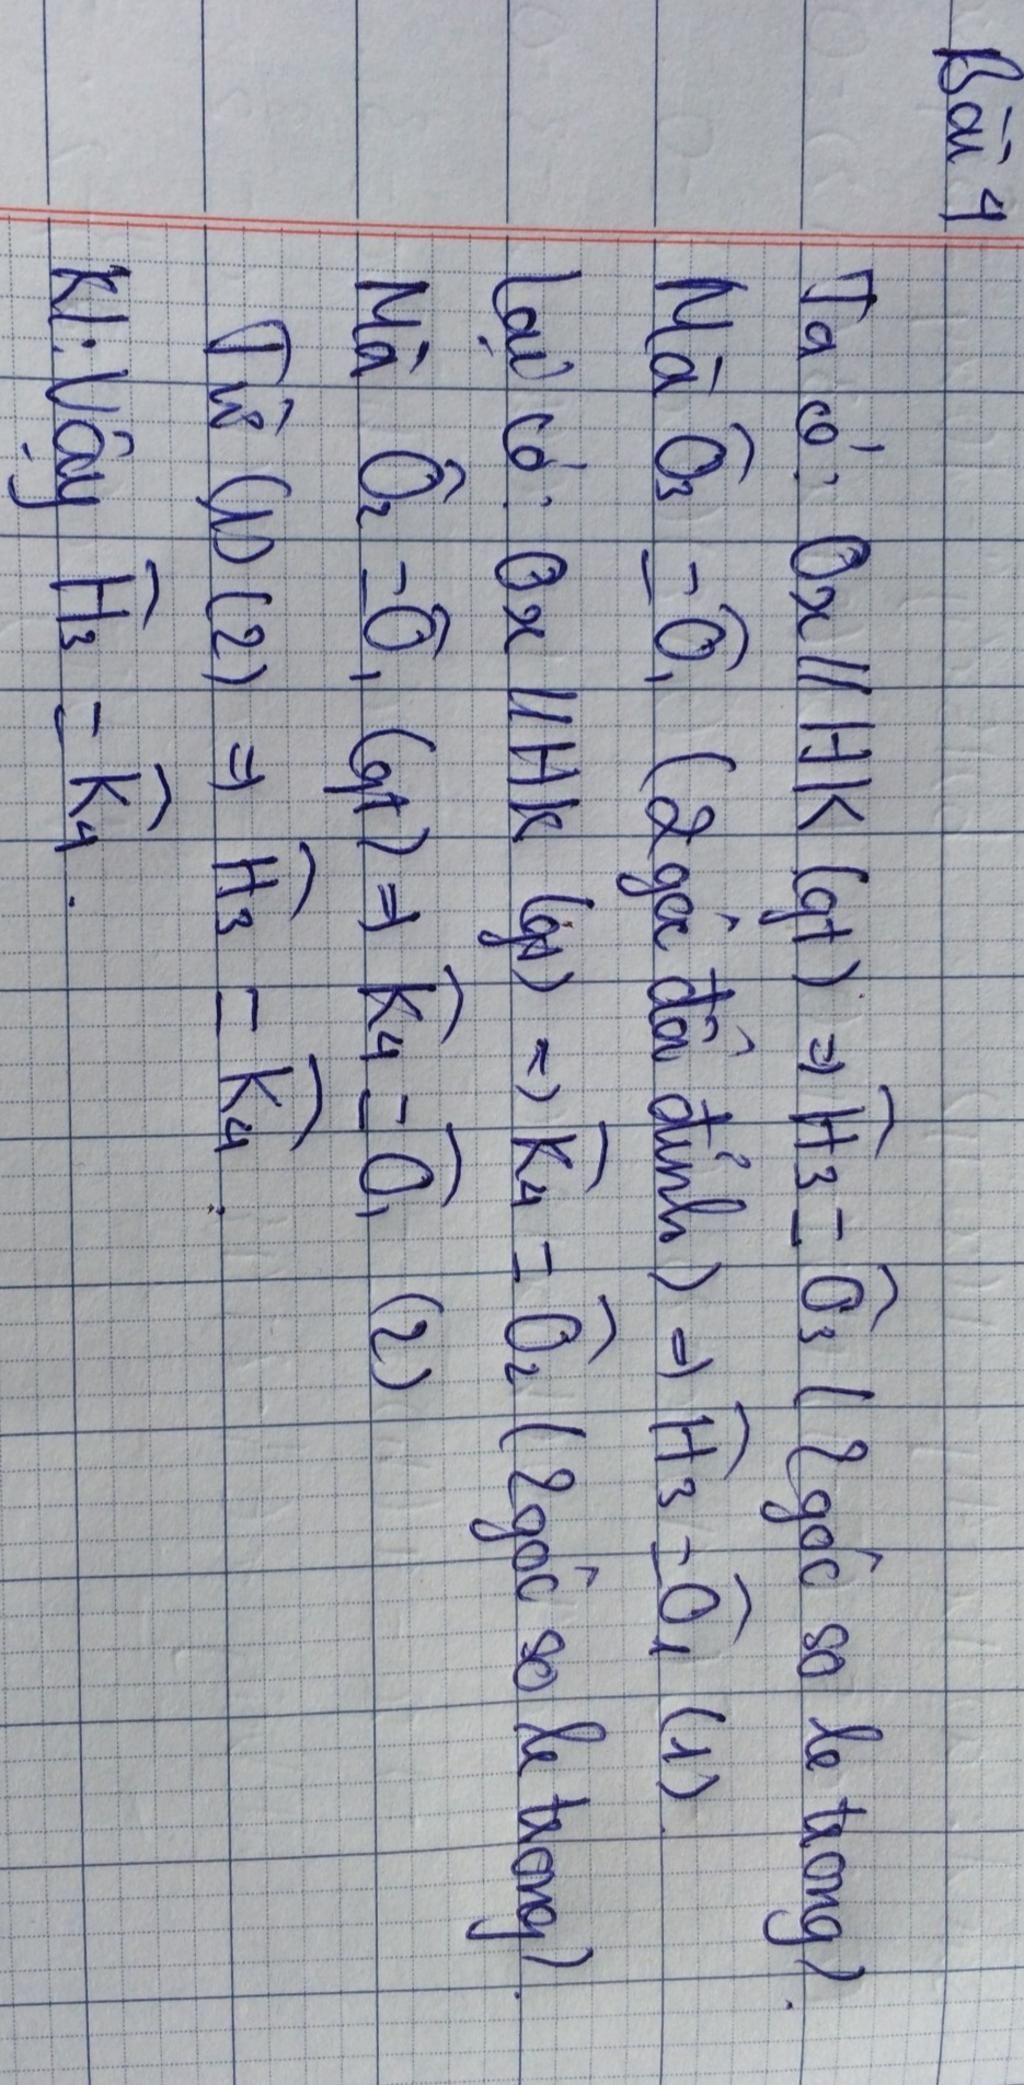 Bài 1
Ta có: Ox // HK (gt) => Ĥ₃ = Ô₃ (2 góc so le trong).
Mà Ô₃ = Ô₁ (2 góc đối đỉnh) => Ĥ₃ = Ô₁ (1)
Lại có: Ox // HK (gt) => K̂₄ = Ô₂ (2 góc so le trong).
Mà Ô₂ = Ô₁ (gt) => K̂₄ = Ô₁ (2)
Từ (1) (2) => Ĥ₃ = K̂₄.
Kl: Vậy Ĥ₃ = K̂₄.